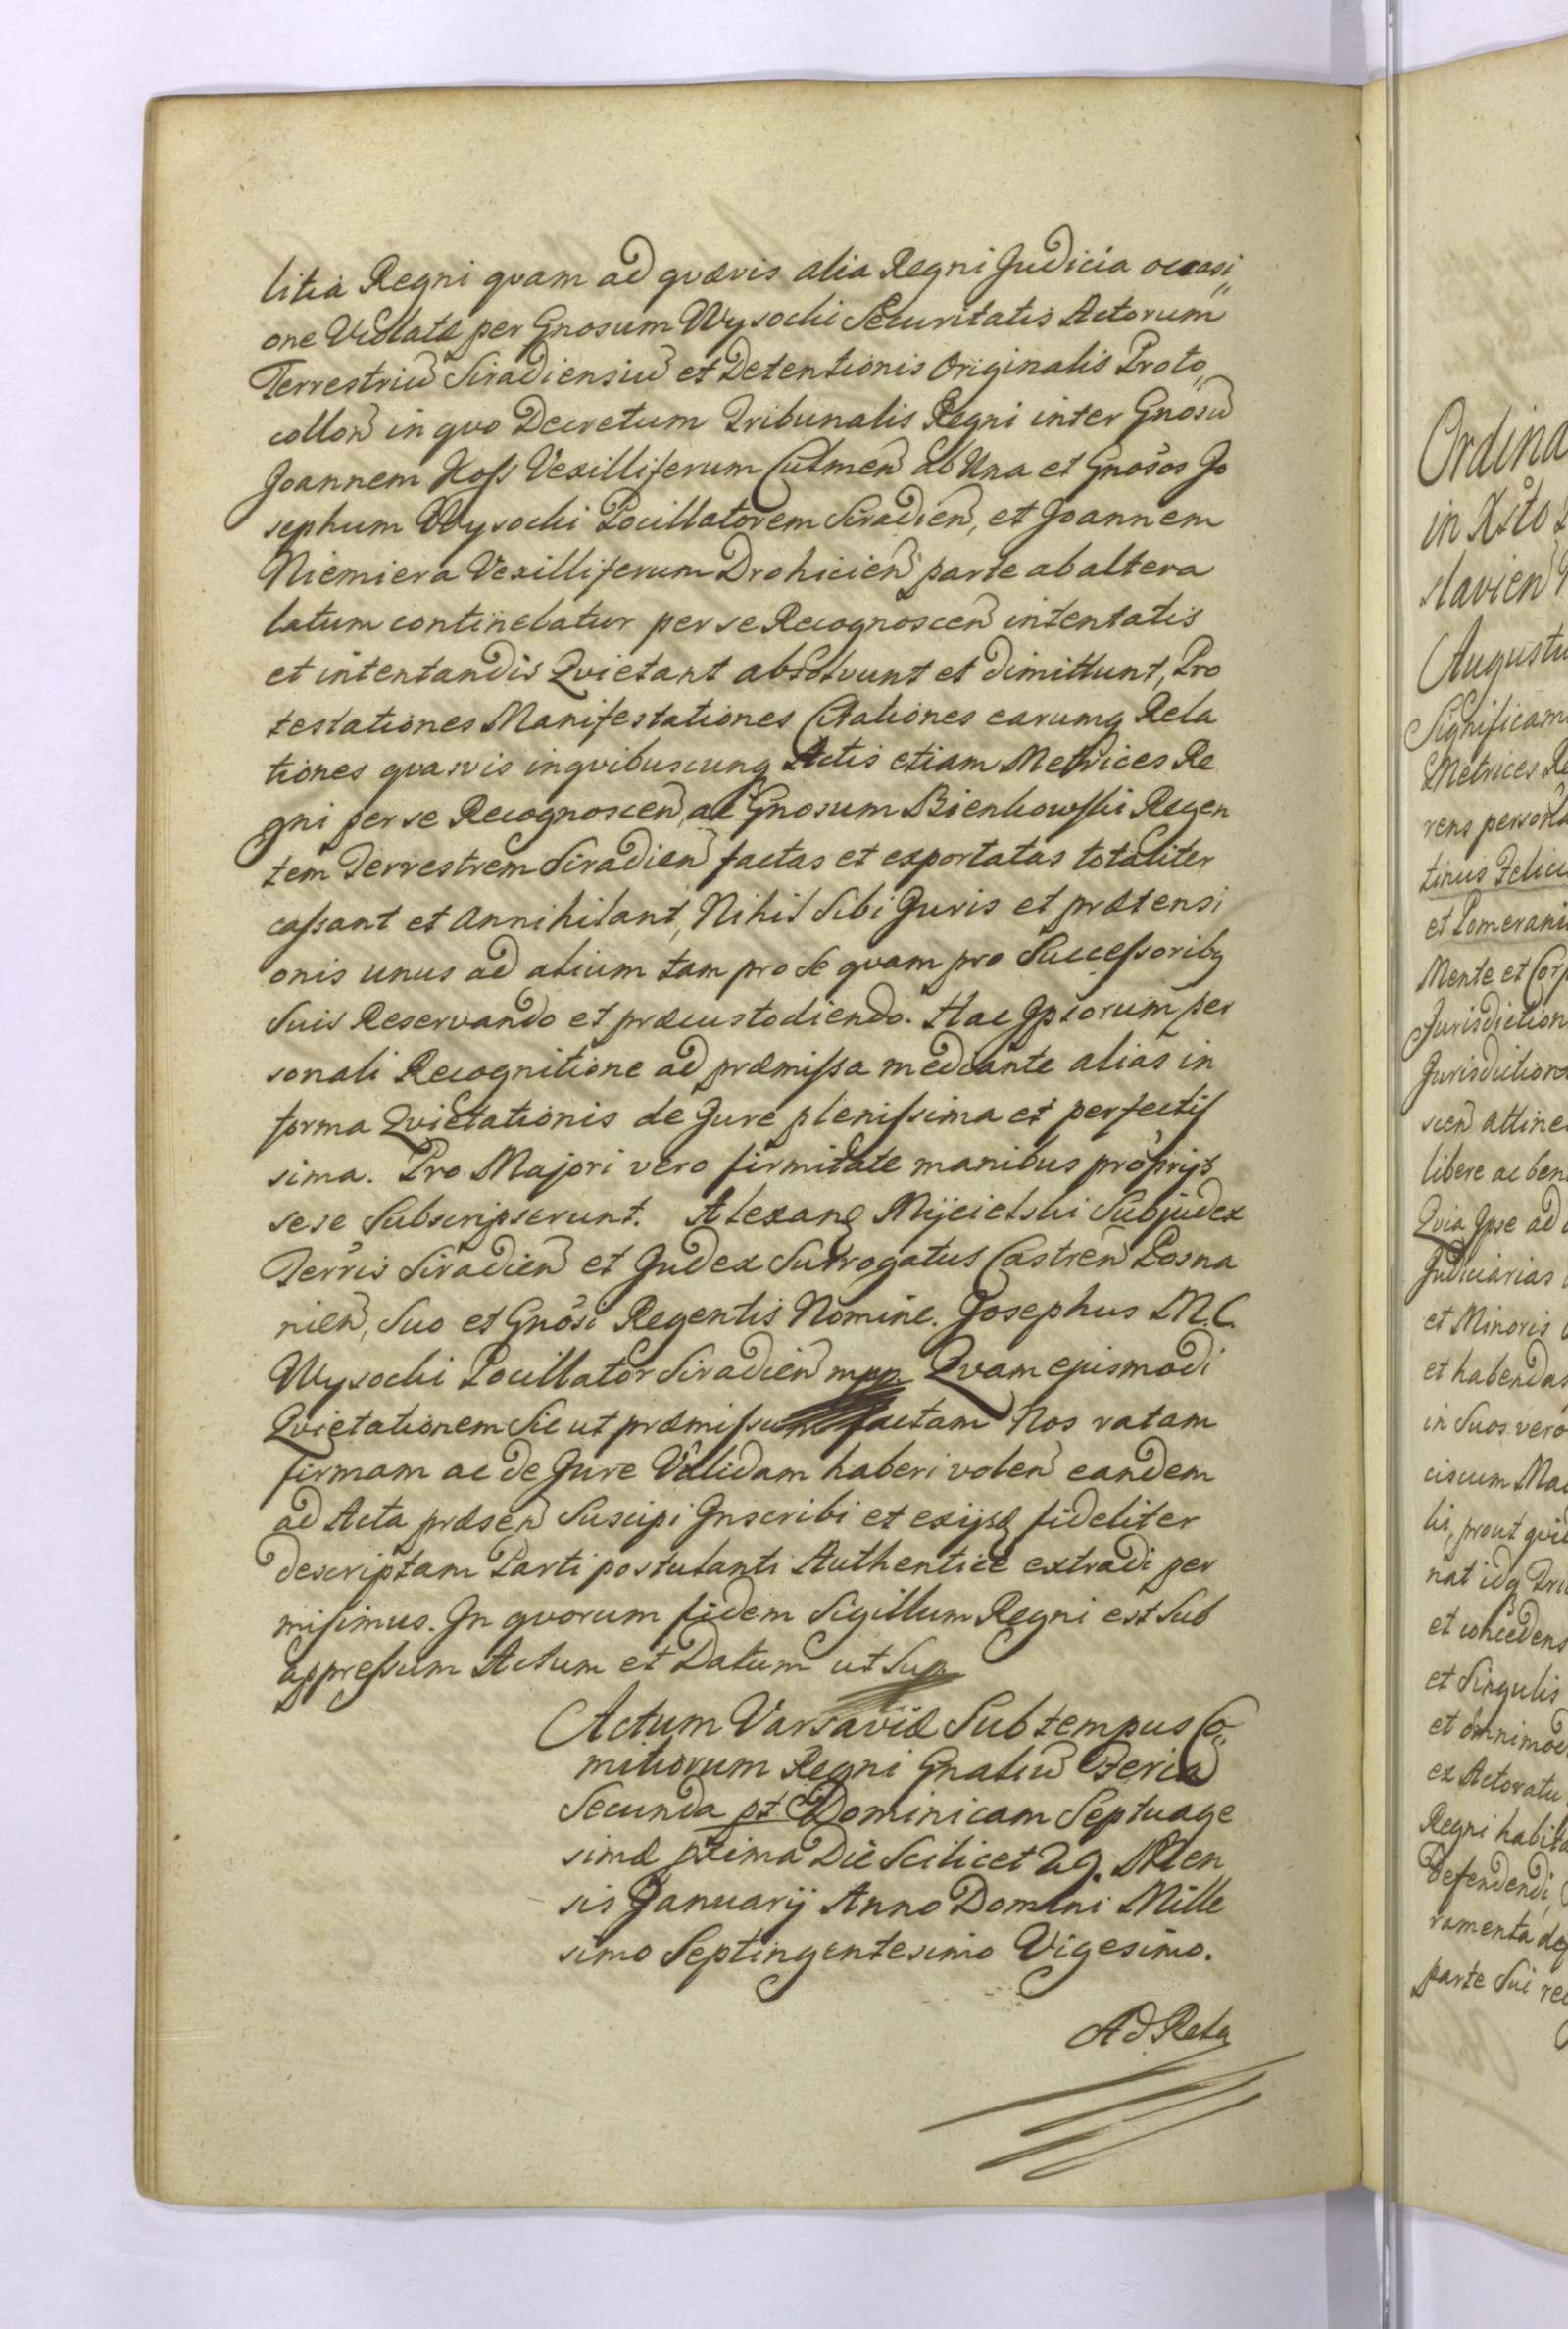 litia Regni quam ad quævis alia Regni Judicia occasi„
one Violatæ per Gnosum Wysocki Securitatis Actorum
Terrestriũ Siradiensiũ et Detentionis Originalis Proto„
collon̄ in quo Decretum Tribunalis Regni inter Gnosũ
Joannem Koſs Vexilliferum Culmen̄ ab Una et Gnosos Jo
sephum Wysocki Pocillatorem Siradien̄, et Joannem
Niemiera Vexilliferum Drohicien̄ parte ab altera
latum continebatur per se Recognoscen̄ intentatis
et intentandis Quietant absolvunt et dimittunt, Pro
testationes Manifestationes Citationes earumq Rela
tiones quasvis inquibuscunq Actis etiam Metrices Re
gni per se Recognoscen̄, ac Gnosum Bienkowſki Regen
tem Terrestrem Siradien̄ factas et exportatas totaliter
caſsant et annihilant, Nihil Sibi Juris et prætensi
onis unus ad alium tam pro se quam pro Succeſsoribq
Suis Reservando et præcustodiendo. Hac Jpsorum per
sonali Recognitione ad præmiſsa mediante alias in
forma Quietationis de Jure pleniſsima et perfectiſ
sima. Pro Majori vero firmitate manibus proprijs
sese Subscripserunt. Alexand Mijcielski Subjudex
Terris Siradien̄ et Judex Surrogatus Castren̄ Posna
nien̄, Suo et Gnosi Regentis Nomine. Josephus M.C.
Wysocki Pocillator Siradien̄ mpp. Quam ejusmodi
Quietationem Sic ut præmiſsum factam Nos ratam
firmam ac de Jure Validam haberi volen̄ eandem
ad Acta præsen̄ Suscipi Jnscribi et exijsd fideliter
descriptam Parti postulanti Authentice extradi per
misimus. Jn quorum fidem Sigillum Regni est Sub
appreſsum Actum et Datum ut Sup
Actum Varsaviæ Sub tempus Co„
mitiorum Regni Gnaliũ Feria
Secunda pt Dominicam Septuage
simæ ptima Die Scilicet 29. Men
sis Januarij Anno Domini Mille
simo Septingentesimo Vigesimo.
Ad Rela
Ordina
in Xsto
slavien̄
Augustu
Significam
Metrices Re
rens personla
tinus Felici
et Pomerani
Mente et Corp
Jurisdiction
Jurisdictions
scen̄ attine
libere ac ben
Quia Jpse ad
Judiciarias
et Minoris
et habendas
in Suos vero
ciscum Mac
ki, prout qui
nat idq
et concedens
et Singulis
et omnimod
ex Actoratu
Regni habita
Defendendi,
ramenta def
parte Sui rec